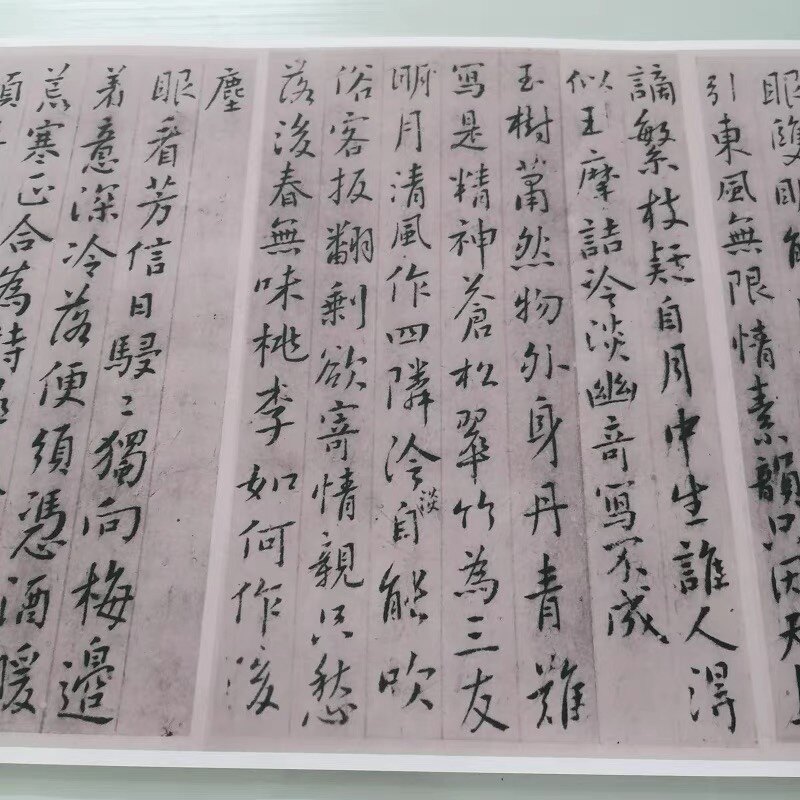 眼雙明能
引東風無限情素韻只因天上
謫繁枝疑自月中生誰人得
似王摩詰冷淡幽奇寫不成
玉樹蕭然物外身丹青難
寫是精神蒼松翠竹為三友
明月清風作四隣冷淡自能吹
俗客扳翻剩欲寄情親只愁
落後春無味桃李如何作後
塵
眼看芳信日駸〻獨向梅邊
着意深冷落便須憑酒暖
荒寒正合為詩